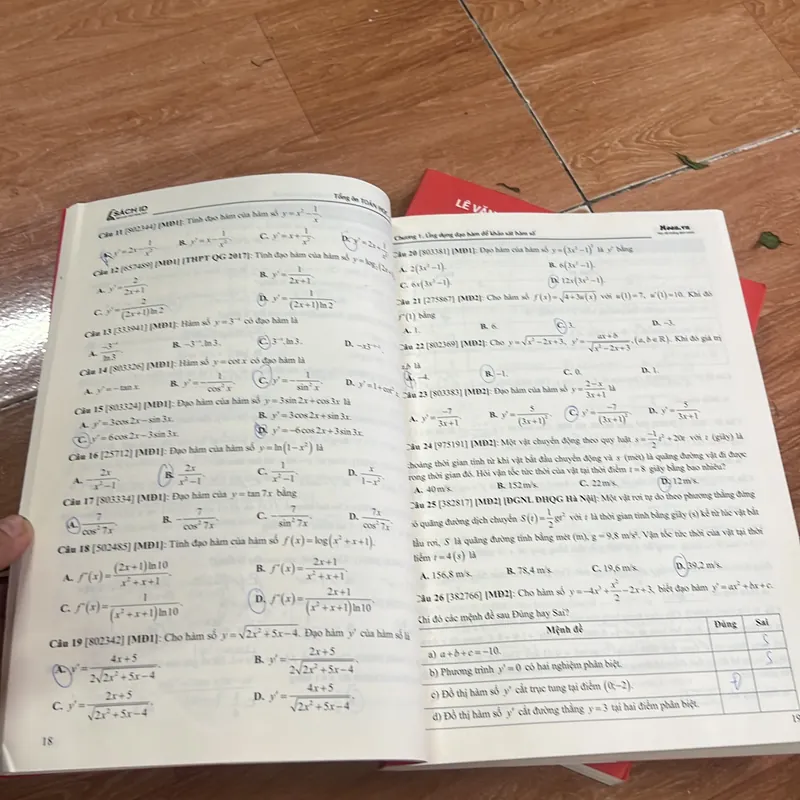 SÁCH ID
Tổng ôn TOÁN HỌC
Câu 11 [802344] [MĐ1]: Tính đạo hàm của hàm số y = x² − 1/x.
A. y' = 2x − 1/x². B. y' = x − 1/x². C. y' = x + 1/x². D. y' = 2x + 1/x².
Câu 12 [657489] [MĐ1] [THPT QG 2017]: Tính đạo hàm của hàm số y = log₂(2x
A. y' = 2/(2x+1). B. y' = 1/(2x+1).
C. y' = 2/((2x+1)ln2). D. y' = 1/((2x+1)ln2).
Câu 13 [333941] [MĐ1]: Hàm số y = 3⁻ˣ có đạo hàm là
A. −3⁻ˣ/ln3. B. −3⁻ˣ.ln3. C. 3⁻ˣ.ln3. D.
Câu 14 [803326] [MĐ1]: Hàm số y = cot x có đạo hàm là
A. y' = −tan x. B. y' = −1/cos²x. C. y' = −1/sin²x. D. y' = 1 + cot²x
Câu 15 [803324] [MĐ1]: Đạo hàm của hàm số y = 3sin2x + cos3x là
A. y' = 3cos2x − sin3x. B. y' = 3cos2x + sin3x.
C. y' = 6cos2x − 3sin3x. D. y' = −6cos2x + 3sin3x.
Câu 16 [25712] [MĐ1]: Đạo hàm của hàm số y = ln(1 − x²) là
A. −2x/(x²−1). B. 2x/(x²−1). C. 1/(x²−1). D. x/(1−x²).
Câu 17 [803334] [MĐ1]: Đạo hàm của y = tan7x bằng
A. 7/cos²7x. B. −7/cos²7x. C. −7/sin²7x. D. 7x/cos²7x.
Câu 18 [502485] [MĐ1]: Tính đạo hàm của hàm số f(x) = log(x² + x + 1).
A. f'(x) = (2x+1)ln10/(x²+x+1). B. f'(x) = (2x+1)/(x²+x+1).
C. f'(x) = 1/((x²+x+1)ln10). D. f'(x) = (2x+1)/((x²+x+1)ln10).
Câu 19 [802342] [MĐ1]: Cho hàm số y = √(2x²+5x−4). Đạo hàm y' của hàm số là
A. y' = (4x+5)/(2√(2x²+5x−4)). B. y' = (2x+5)/(2√(2x²+5x−4)).
C. y' = (2x+5)/√(2x²+5x−4). D. y' = (4x+5)/√(2x²+5x−4).
18
LÊ VĂN
Chương 1. Ứng dụng đạo hàm để khảo sát hàm số
Moon.vn
Câu 20 [803381] [MĐ1]: Đạo hàm của hàm số y = (3x² − 1)² là y' bằng
A. 2(3x² − 1). B. 6(3x² − 1).
C. 6x(3x² − 1). D. 12x(3x² − 1).
Câu 21 [275867] [MĐ2]: Cho hàm số f(x) = √(4 + 3u(x)) với u(1) = 7, u'(1) = 10. Khi đó
f'(1) bằng
A. 1. B. 6. C. 3. D. −3.
Câu 22 [802369] [MĐ2]: Cho y = √(x² − 2x + 3), y' = (ax+b)/√(x² − 2x + 3), (a,b ∈ R). Khi đó giá trị
a.b là
A. −4. B. −1. C. 0. D. 1.
Câu 23 [803383] [MĐ2]: Đạo hàm của hàm số y = (2−x)/(3x+1) là
A. y' = −7/(3x+1). B. y' = 5/(3x+1)². C. y' = −7/(3x+1)². D. y' = 5/(3x+1).
Câu 24 [975191] [MĐ2]: Một vật chuyển động theo quy luật s = −1/2 t² + 20t với t (giây) là
khoảng thời gian tính từ khi vật bắt đầu chuyển động và s (mét) là quãng đường vật đi được
trong thời gian đó. Hỏi vận tốc tức thời của vật tại thời điểm t = 8 giây bằng bao nhiêu?
A. 40 m/s. B. 152 m/s. C. 22 m/s. D. 12 m/s.
Câu 25 [382817] [MĐ2] [ĐGNL ĐHQG Hà Nội]: Một vật rơi tự do theo phương thẳng đứng
có quãng đường dịch chuyển S(t) = 1/2 gt² với t là thời gian tính bằng giây (s) kể từ lúc vật bắt
đầu rơi, S là quãng đường tính bằng mét (m), g = 9,8 m/s². Vận tốc tức thời của vật tại thời
điểm t = 4 (s) là
A. 156,8 m/s. B. 78,4 m/s. C. 19,6 m/s. D. 39,2 m/s.
Câu 26 [382766] [MĐ2]: Cho hàm số y = −4x³ + x²/2 − 2x + 3, biết đạo hàm y' = ax² + bx + c.
Khi đó các mệnh đề sau Đúng hay Sai?
Mệnh đề Đúng Sai
a) a + b + c = −10. S
b) Phương trình y' = 0 có hai nghiệm phân biệt. S
c) Đồ thị hàm số y' cắt trục tung tại điểm (0;−2). Đ
d) Đồ thị hàm số y' cắt đường thẳng y = 3 tại hai điểm phân biệt.
19